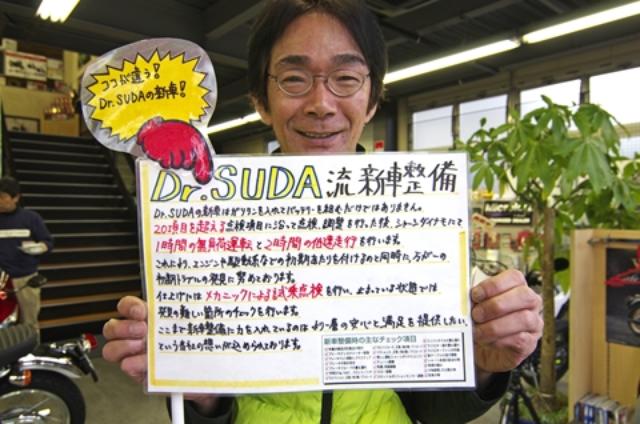 ココが違う!
Dr.SUDAの新車!
Dr.SUDA 流 新車整備
Dr.SUDAの新車はガソリンを入れてバッテリーを組むだけではありません。
20項目を超える点検項目に沿って点検、調整を行った後、シャーシダイナモにて
1時間の無負荷運転と2時間の低速走行を行います。
これにより、エンジンや駆動系などの初期あたりを付けるのと同時に、万が一の
初期トラブルの発見に努めております。
仕上げにはメカニックによる試乗点検を行い、止まっている状態では
発見の難しい箇所のチェックを行います。
ここまで新車整備に力を入れているのは、より一層の安心と満足を提供したい、
という当社の想いが込められております。
新車整備時の主なチェック項目